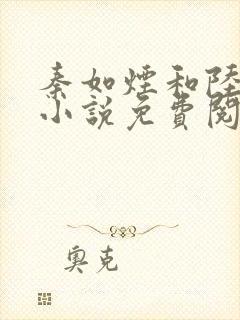 秦如煙和陸
小說免費閱
奧克